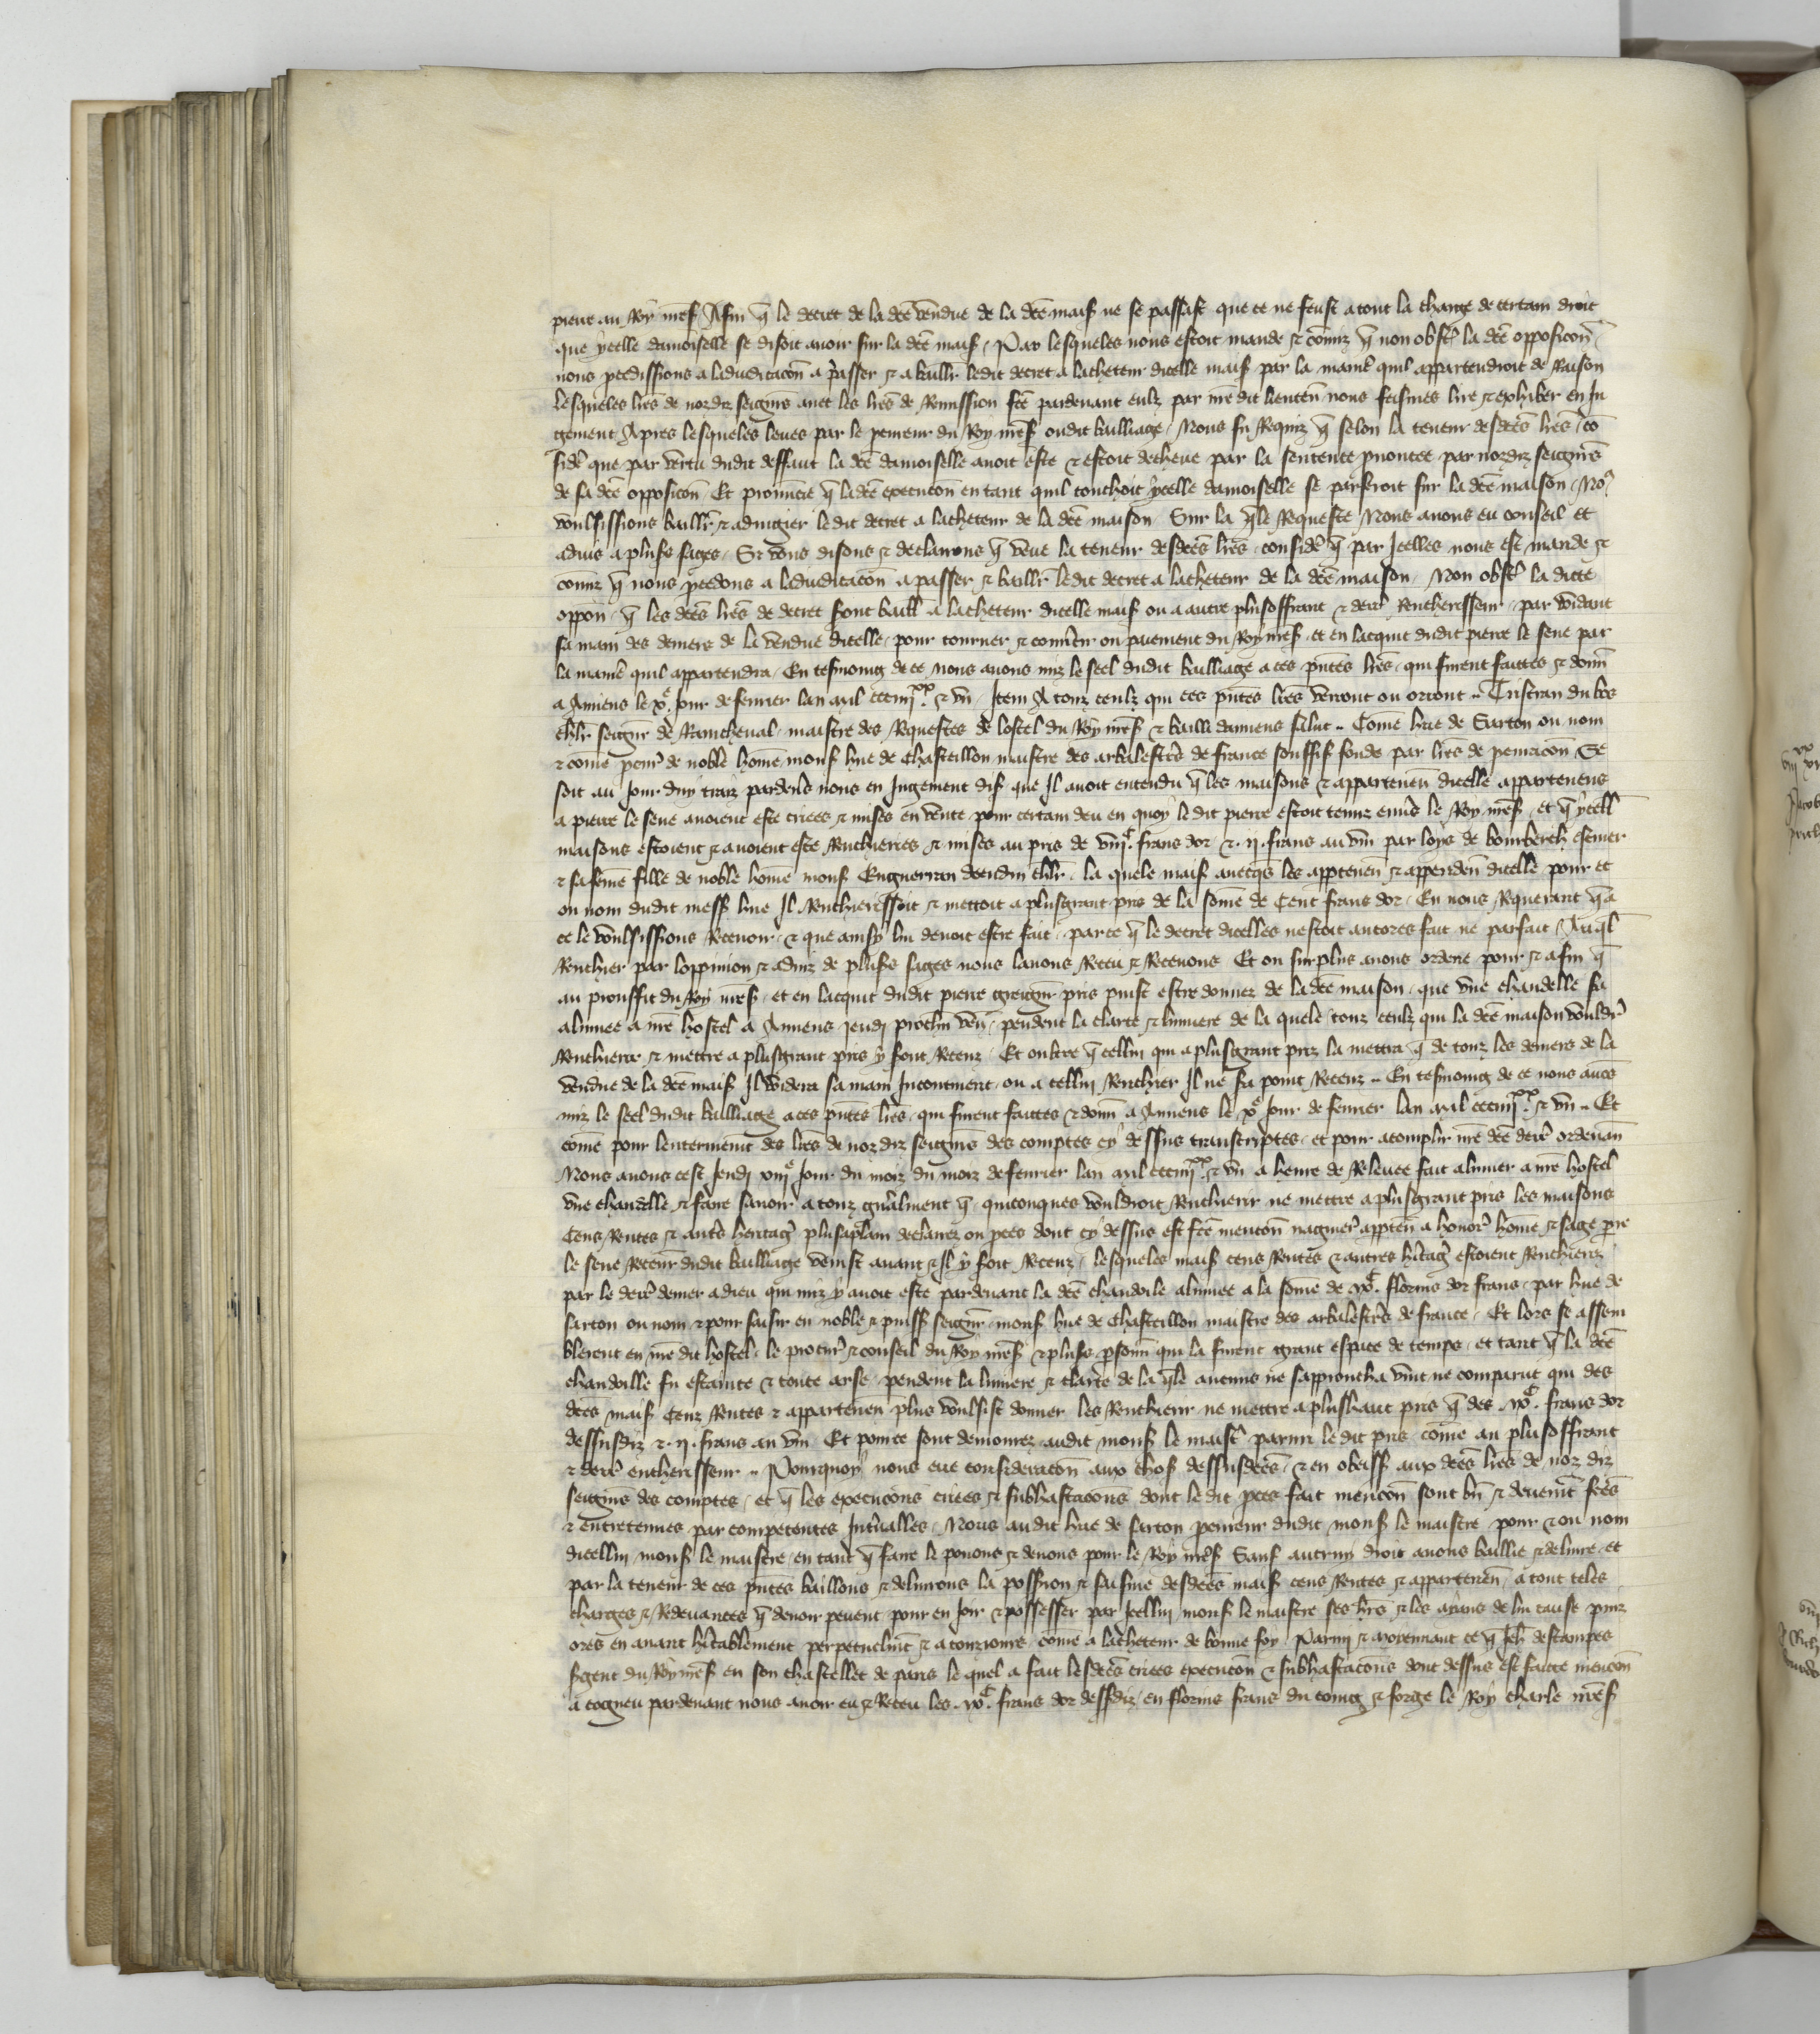 pierre au Roy nr̄e s̄ Afin q̄ le decret de la dc̄e vendue de la dc̄e mais̄ ne se passast que ce ne feust a tout la charge de certain droit
que ycelle damoiselle se disoit avoir sur la dc̄e mais̄ / Par lesqueles nous estoit mande & cōmiz q̄ non obst̄ la dc̄e opposicōn
nous p̄cedissions a ladiudicacōn a passer & a baillr̄ ledit decret a lacheteur dicelle mais̄ par la manr̄e quil appartendroit de Raison
lesqueles lr̄es de nozdiz seign̄rs avec les lr̄es de Remission fc̄e pardevant eulx par nr̄e dit lieuten̄ nous feismes lire & exhiber en Ju
gement Apres lesqueles leues par le p̄cureur du Roy nr̄e s̄ oudit bailliage / Nous fu Requiz q̄ selon la teneur desdc̄es lr̄es / cō
sider̄ que par vertu dudit deffaut la dc̄e damoiselle avoit este & estoit decheue par la sentence p̄noncee par nozdiz seign̄rs
de sa dc̄e opposicōn / Et prononcie q̄ la dc̄e execucōn en tant quil touchoit ycelle damoiselle se parferoit sur la dc̄e maison / No9
voulsissions baillr̄ & adiugier le dit decret a lacheteur de la dc̄e maison Sur la q̄le Requeste Nous avons eu conseil et
advis a plus̄s sages / Si vous disons & declairons q̄ veue la teneur desdc̄es lr̄es / consider̄ q̄ par Jcelles nous est mande &
cōmiz q̄ nous p̄cedons a ladiudicacōn a passer & baillr̄ ledit decret a lacheteur de la dc̄e maison / Non obst̄ la dicte
oppon̄ / q̄ les dc̄es lr̄es de decret sont baill̄ a lacheteur dicelle mais̄ ou a autre plus offrant & derr̄ Rencherisseur / par vuidant
sa main des deniers de la vendue dicelle / pour tourner & convertir ou paiement du Roy nr̄e s̄ / et en lacquit dudit pierre le sene par
la manr̄e quil appartendra / En tesmoing de ce nous avons miz le seel dudit bailliage a ces pn̄tes lr̄es / qui furent faittes & donn̄
a Amiens le xe. Jour de fevrier lan mil ccciiijxx. & vn / Item A touz ceulz qui ces pn̄tes lr̄es verront ou orront .. Tristran du bos
chlr̄ seign̄r de Raincheval / maistre des Requestes de lostel du Roy nr̄e s̄ & bailli damiens salut .. Come hue de Sarton ou nom
& come p̄cur̄ de noble hōme mons̄ hue de Chasteillon maistre des arbalestr̄es de france souffis̄ fonde par lr̄es de p̄curacōn Se
soit au Jour duy traiz pardevs nous en Jugement dis̄ que Il avoit entendu q̄ les maisons & appartenen̄ dicelle appartenens
a pierre le sene avoient este criees & mises en vente / pour certain deu en quoy le dit pierre estoit tenuz envers le Roy nr̄e s̄ / et q̄ ycell̄
maisons estoient & avoient este Rencheries & mises au pris de viijc. frans dor & .ij. frans au vin par loys de escuier
& sa fēme fille de noble hōme mons̄ Enguerran deudin chlr̄ . la quele mais̄ avecqs les apptenen̄ & appenden̄ dicelle pour et
ou nom dudit mess̄ hue Il Rencherissoit & mettoit a plusgrant pris de la sōme de Cent frans dor / En nous Requerant q̄ a
ce le voulsissions Recevoir / & que ainsy lui devoit estre fait / parce q̄ le decret dicelles nestoit ancores fait ne parfait / Auql̄
Renchier par loppinion & adviz de plus̄s sages nous lavons Receu & Recevons Et ou surplus avons ordene pour & afin q̄
au prouffit du Roy nr̄e s̄ / et en lacquit dudit pierre greign̄r pris puist estre donnez de la dc̄e maison / que vne chandelle fu
alumee a nr̄e hostel a Amiens jeudi prochn̄ ven̄ / pendent la clarte & lumiere de la quele / touz ceulz qui la dc̄e maison vouldr̄
Rencherir & mettre a plusgrant pris y sont Recuz / Et oultre q̄ cellui qui a plusgrant priz la mettra q̄ de touz les deniers de la
vendue de la dc̄e mais̄ Il vuidera sa main Incontinent / ou a cellui Renchier Il ne fu point Recuz .. En tesmoing de ce nous avōs
miz le seel dudit bailliage a ces pn̄tes lr̄es / qui furent faittes & donn̄ a Amiens le xe Jour de fevrier lan mil ccciiijxx. & vn .. Et
come pour lenterinem̄t des lr̄es de nozdiz seign̄rs des comptes cy dessus transcriptes / et pour acomplir nr̄e dc̄e derr̄ ordenan̄
Nous avons cest Jeudi xiije Jour du moiz du moiz de fevrier lan mil ccciiijxx. & vn a heure de Relevee fait alumer a nr̄e hostel
vne chandelle & faire savoir a touz gn̄ralment q̄ quiconques vouldroit Rencherir ne mettre a plusgrant pris les maisons
Cens Rentes & autrs heritaḡ plusaplain declarez ou p̄ces dont cy dessus est fc̄e mencōn nagueir̄ apptēn a honor̄ hōme & sage pr̄e
le sene Receur dudit bailliage venist avant & Il y soit Recuz / lesqueles mais̄ cens Rentes & autres hr̄itaḡ estoient Rencheriz
par le derr̄ denier a dieu qui miz y avoit este pardevant la dc̄e chandeile alumee a la sōme de ixc. florins dor frans / par hue de
sarton ou nom & pour saisir en noble & puiss̄ seign̄r / mons̄ hue de Chasteillon maistre des arbalestr̄es de france / Et lors se assem
blerent en nr̄e dit hostel / le procur̄ & conseil du Roy nr̄e s̄ & plus̄s p̄sonn̄ qui la furent grant espace de temps / et tant q̄ la dc̄e
chandoille fu estainte & toute arse / pendent la lumiere & clarte de la q̄le aucuns ne sapproucha vint ne comparut qui des
dc̄es mais̄ Cenz Rentes & appartenen̄ plus voulsist donner les Rencherir ne mettre a plushaut pris q̄ des .ixc. frans dor
dessusdiz & .ij. frans au vin Et pour ce sont demourez audit mons̄ le maistr̄ parmi le dit pris / come au plus offrant
& derr̄ encherisseur .. Pourquoy nous eue consideracōn aux chos̄ dessusdc̄es / & en obeiss̄ aux dc̄es lr̄es de noz diz
seign̄rs des comptes / et q̄ les execucōns criees & subhastacōns dont le dit p̄ces fait mencōn sont bn̄ & deuem̄t fc̄es
& entretenues par competentes Intervalles / Nous audit hue de sarton p̄cureur dudit mons̄ le maistre pour & ou nom
dicellui mons̄ le maistre / en tant q̄ faire le povons & devons pour le Roy nr̄e s̄ Sauf autrui droit avons baillie & delivre / et
par la teneur de ces pn̄tes baillons & delivrons la poss̄ion & saisine desdc̄es mais̄ cens Rentes & appartenen̄ / a tout teles
charges & Redevances q̄ devoir pevent / pour en Joir & possesser par Jcellui mons̄ le maistre ses hr̄s & les aians de lui cause pour
ores en avant hr̄itablement perpetuelm̄t & a touziours / come a lacheteur de bonne foy Parmi & moyennant ce q̄ Jeh̄ destampes
sergent du Roy nr̄e s̄ en son chastellet de paris le quel a fait lesdc̄es criees execucōn & subhastacōns dont dessus est faitte mencōn
a cogneu pardevant nous avoir eu & Receu les .ixc. frans dor dessdiz / en florins frans du coing & forge le Roy charle nr̄e s̄